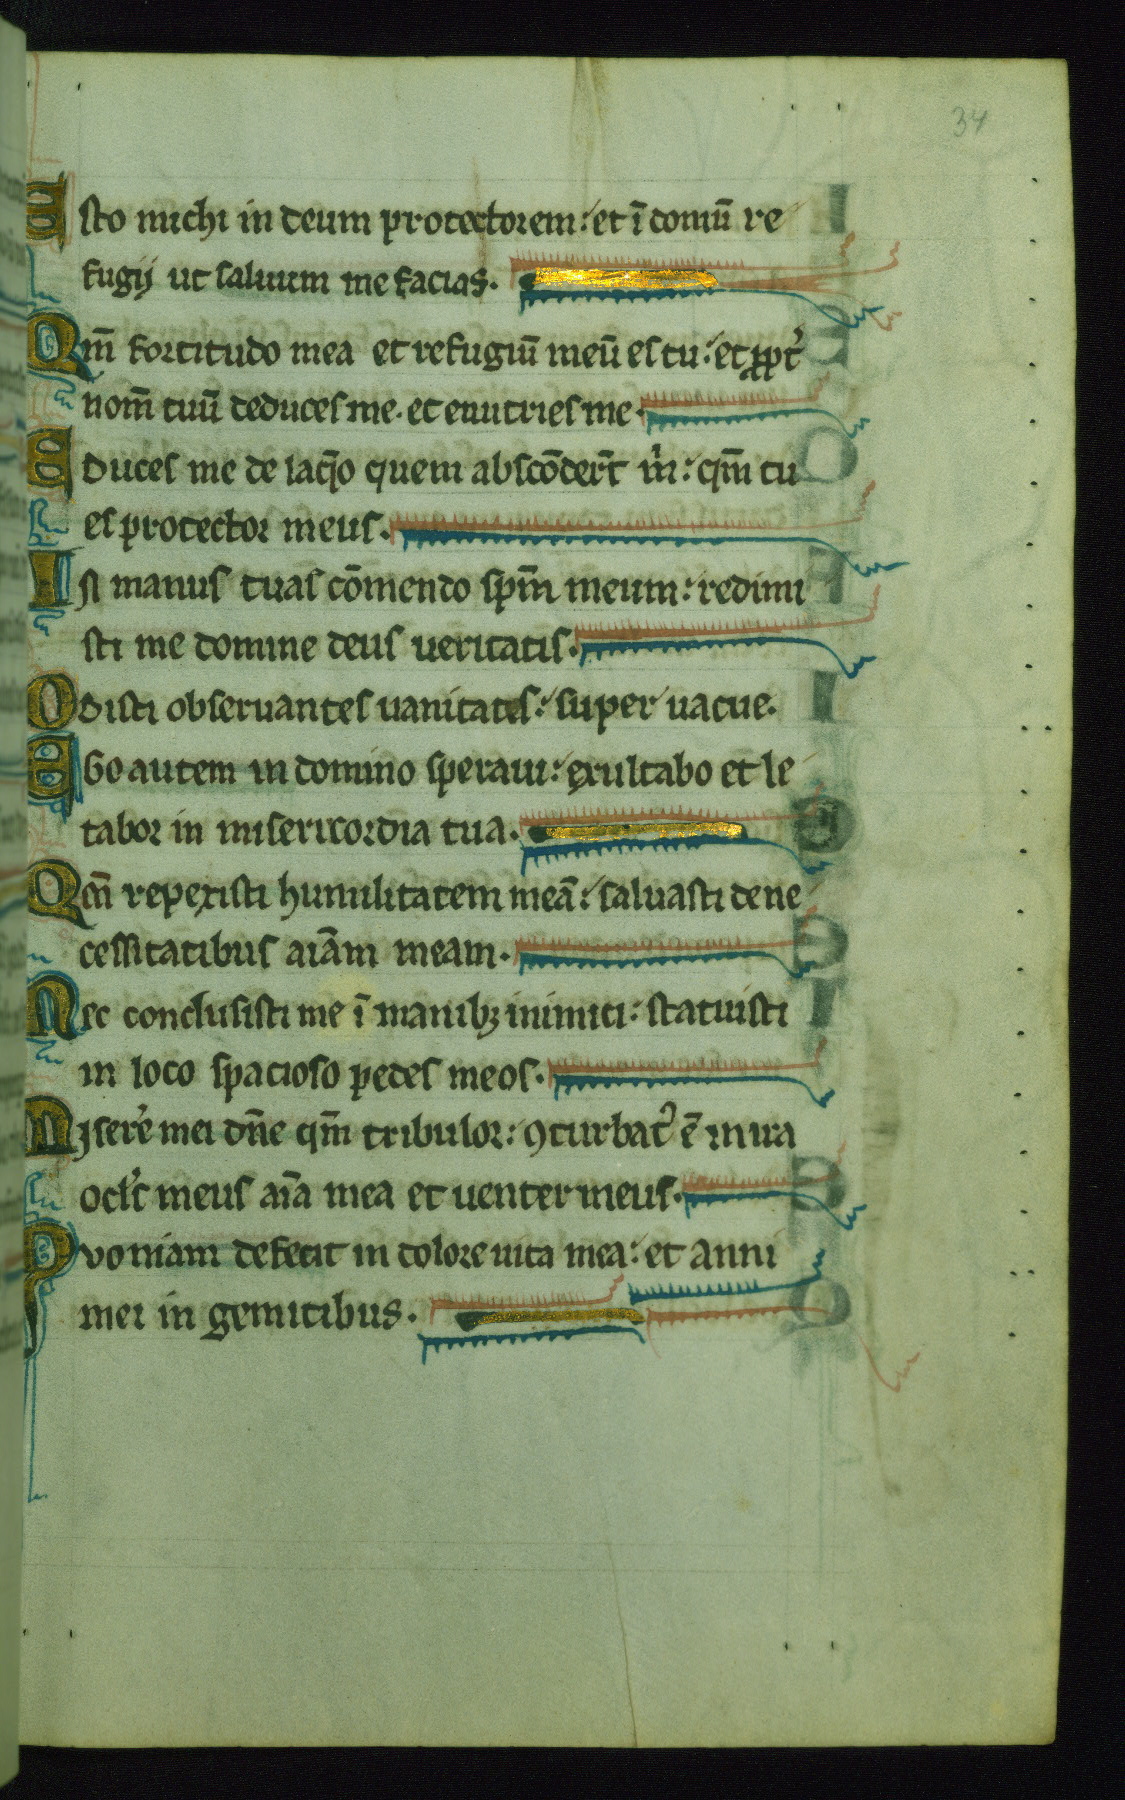 34
Esto michi in deum protectorem: et ī domū re
fugij ut saluum me facias.
Qm̄ fortitudo mea et refugiū meū es tu: et ꝓpt̉
nom̄ tuū deduces me. et enutries me.
Educes me de laq̄o quem abscōder̄t m̉: qm̄ tu
es protector meus.
In manus tuas cōmendo spm̄ meum: redimi
sti me domine deus ueritatis.
Odisti obseruantes uanitates: super uacue.
Ego autem in domino speraui: exultabo et le
tabor in misericordia tua.
Qm̄ respexisti humilitatem meā: saluasti de ne
cessitatibus aiām meam.
Nec conclusisti me ī manibꝫ inimici: statuisti
in loco spacioso pedes meos.
Misere̓ mei dn̄e qm̄ tribulor: ꝯturbat᷒ ē in ira
ocl̓s meus aīa mea et uenter meus.
Quoniam defecit in dolore uita mea: et anni
mei in gemitibus.